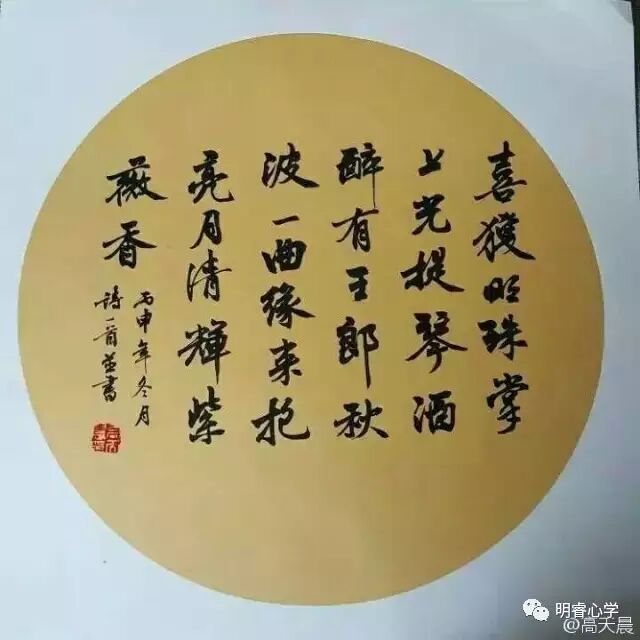 喜獲明珠掌
上光提琴酒
醉有王郎秋
波一曲緣来抱
亮月清輝紫
薇香
丙申年冬月
詩一首並書
明睿心学
@高天晨